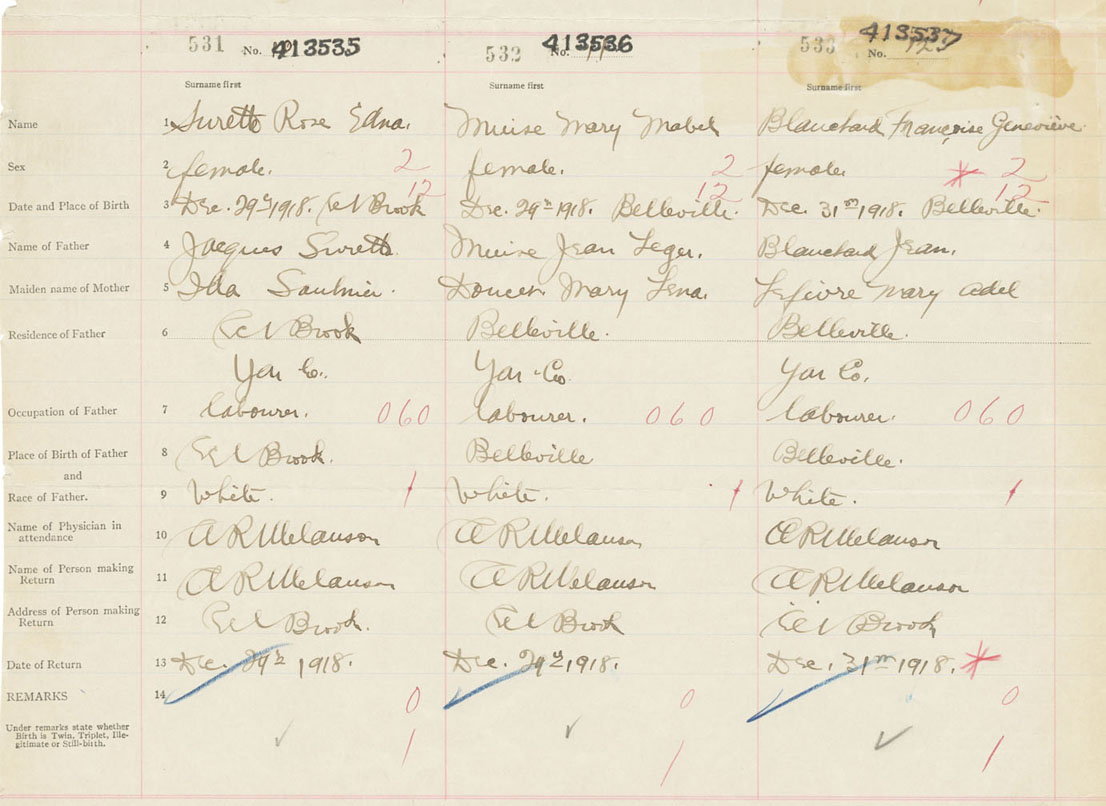 531 No. 413535 532 No. 413536 533 No. 413537
Surname first Surname first Surname first
Name 1 Surette Rose Edna. Muise Mary Mabel Blanchard Françoise Geneviève
Sex 2 female. 2 female. 2 female. * 2
12 12 12
Date and Place of Birth 3 Dec. 29th 1918. Eel Brook Dec. 29th 1918. Belleville. Dec. 31st 1918. Belleville.
Name of Father 4 Jacques Surette. Muise Jean Leger. Blanchard Jean.
Maiden name of Mother 5 Ida Saulnier. Doucet Mary Lena. Lefivre Mary Adel
Residence of Father 6 Eel Brook Belleville. Belleville.
Yar Co. Yar Co. Yar Co.
Occupation of Father 7 labourer. 060 labourer. 060 labourer. 060
Place of Birth of Father 8 Eel Brook. Belleville Belleville.
and
Race of Father. 9 White. 1 White. 1 White. 1
Name of Physician in
attendance 10 A R Melanson A R Melanson A R Melanson
Name of Person making
Return 11 A R Melanson A R Melanson A R Melanson
Address of Person making
Return 12 Eel Brook. Eel Brook Eel Brook
Date of Return 13 Dec. 29th 1918. Dec. 29th 1918. Dec. 31st 1918. *
REMARKS 14 0 0 0
Under remarks state whether
Birth is Twin, Triplet, Ille-
gitimate or Still-birth. 1 1 1